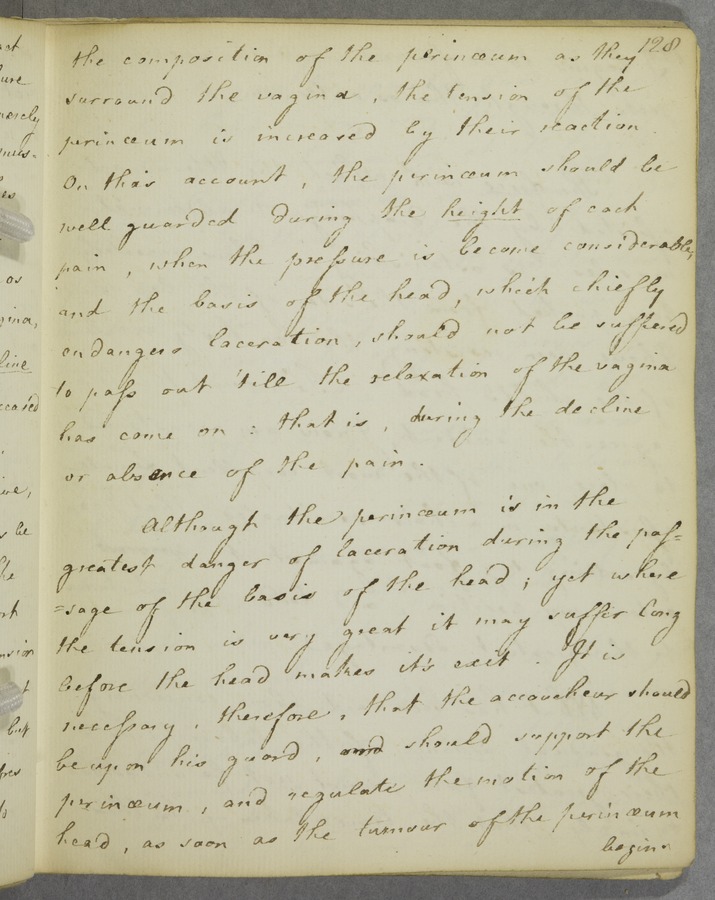 128
the composition of the perinœum as they
surround the vagina, the tension of the
perinœum is increased by their reaction.
On this account, the perinœum should be
well guarded during the height of each
pain, when the preſsure is become considerable,
and the basis of the head, which chiefly
endangers laceration, should not be suffered
to paſs out 'till the relaxation of the vagina
has come on : that is, during the decline
or absence of the pain.
Although the perinœum is in the
greatest danger of laceration during the paſ=
=sage of the basis of the head; yet where
the tension is very great it may suffer long
before the head makes it's exit. It is
neceſsary, therefore, that the accoucheur should
be upon his guard, and should support the
perinœum, and regulate the motion of the
head, as soon as the tumour of the perinœum
begins